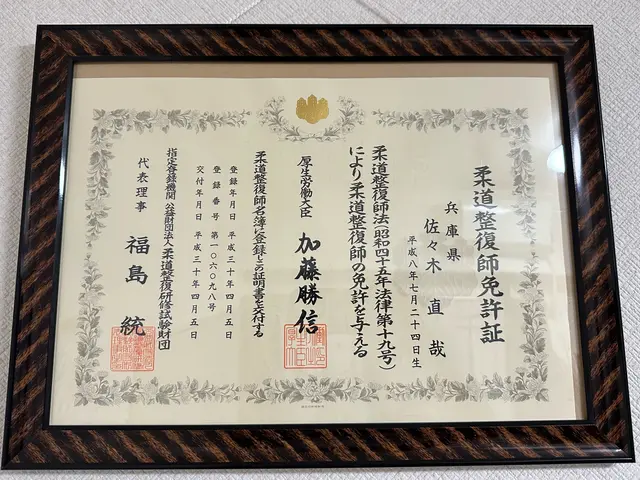 柔道整復師免許証
兵庫県
佐々木直哉
平成八年七月二十四日生
柔道整復師法(昭和四十五年法律第十九号)
により柔道整復師の免許を与える
厚生労働大臣 加藤勝信
柔道整復師名簿に登録しこの証明書を交付する
登録年月日 平成三十年四月五日
登録番号 第一〇六〇九八号
交付年月日 平成三十年四月五日
指定登録機関 公益財団法人柔道整復研修試験財団
代表理事 福島統